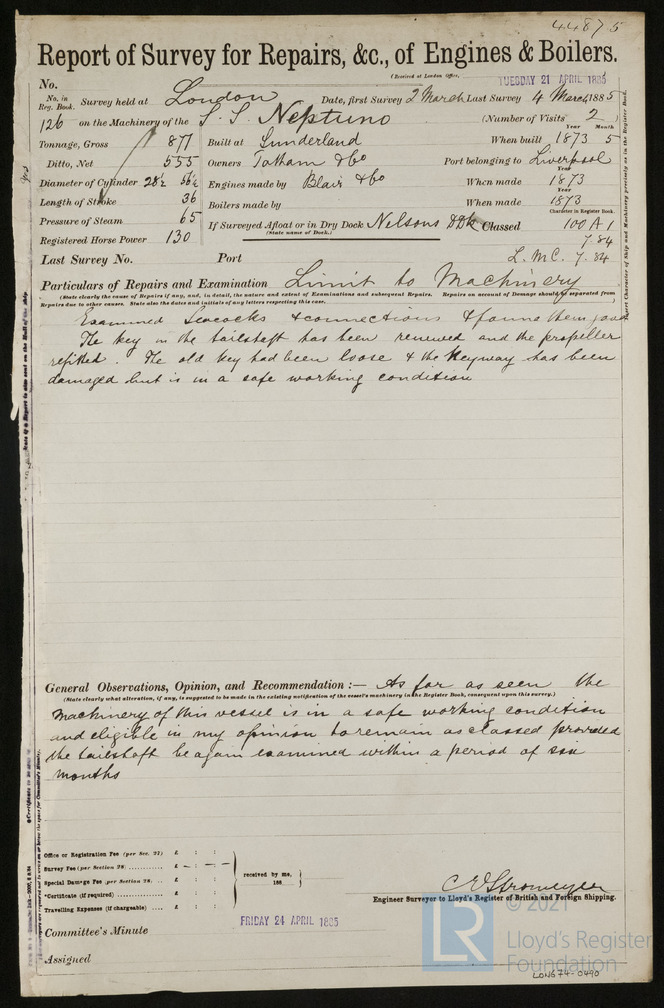 44875
Report of Survey for Repairs, &c., of Engines & Boilers.
(Received at London Office,
TUESDAY 21 APRIL 1885
No.
No. in Reg. Book. Survey held at London Date, first Survey 2 March Last Survey 4 March 1885
126 on the Machinery of the S.S. Neptuno (Number of Visits 2)
Year Month
Tonnage, Gross 877 Built at Sunderland When built 1873 5
Ditto, Net 555 Owners Tatham & Co Port belonging to Liverpool
Year
Diameter of Cylinder 28½ 56½ Engines made by Blair & Co When made 1873
Year
Length of Stroke 36 Boilers made by When made 1873
Character in Register Book.
Pressure of Steam 65 If Surveyed Afloat or in Dry Dock Nelsons D Dk Classed 100 A 1
(State name of Dock.)
Registered Horse Power 130 7.84
Last Survey No. Port L.M.C. 7.84
Particulars of Repairs and Examination Limit to Machinery
(State clearly the cause of Repairs if any, and, in detail, the nature and extent of Examinations and subsequent Repairs. Repairs on account of Damage should be separated from
Repairs due to other causes. State also the dates and initials of any letters respecting this case.
Examined Seacocks & connections & found them good
The key in the tailshaft has been renewed and the propeller
refitted. The old key had been loose & the Keyway has been
damaged but is in a safe working condition
General Observations, Opinion, and Recommendation :— As far as seen the
(State clearly what alteration, if any, is suggested to be made in the existing notification of the vessel's machinery in the Register Book, consequent upon this survey.)
machinery of this vessel is in a safe working condition
and eligible in my opinion to remain as classed provided
the tailshaft be again examined within a period of six
months
Office or Registration Fee (per Sec. 27) £ : :
Survey Fee (per Section 28) £ – : – : –
Special Damage Fee (per Section 28) £ : :
*Certificate (if required) £ : :
Travelling Expenses (if chargeable) £ : :
received by me,
188
C E Stromeyer
Engineer Surveyor to Lloyd's Register of British and Foreign Shipping.
Committee's Minute
FRIDAY 24 APRIL 1885
Assigned
© 2021
LR
Lloyd's Register
Foundation
LON674-0490